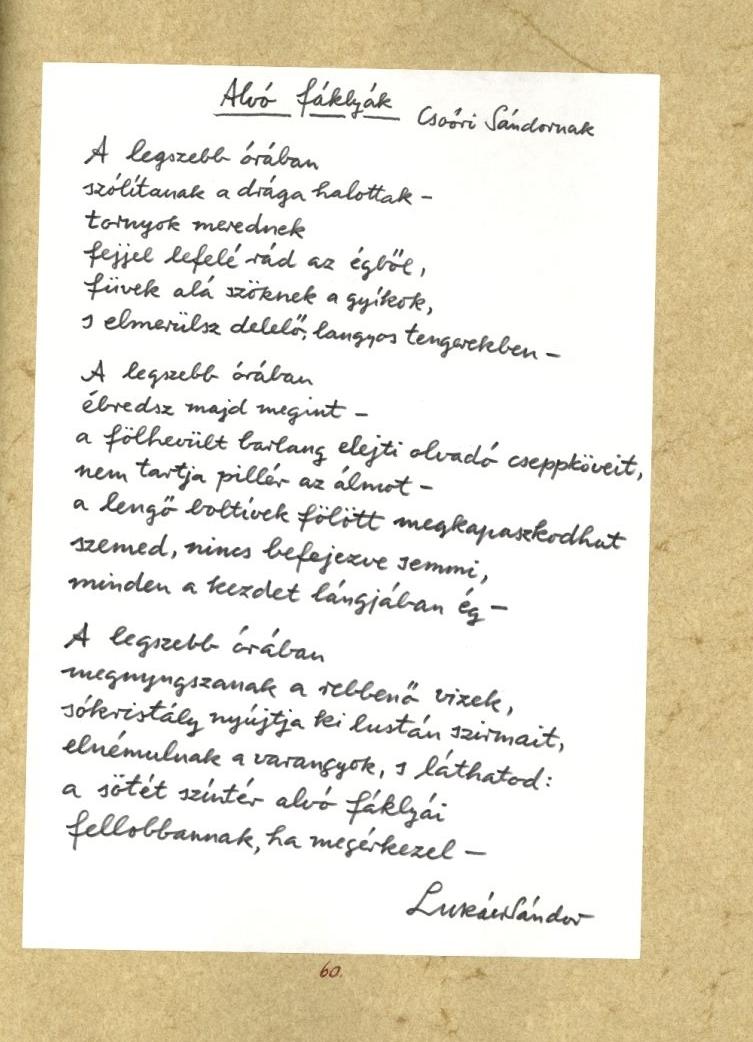 Alvó fáklyák
Csoóri Sándornak
A legszebb órában
szólítanak a drága halottak –
tornyok merednek
fejjel lefelé rád az égből,
füvek alá szöknek a gyíkok,
s elmerülsz delelő, langyos tengerekben –
A legszebb órában
ébredsz majd megint –
a fölhevült barlang elejti olvadó cseppköveit,
nem tartja pillér az álmot –
a lengő boltívek fölött megkapaszkodhat
szemed, nincs befejezve semmi,
minden a kezdet lángjában ég –
A legszebb órában
megnyugszanak a rebbenő vizek,
sókristály nyújtja ki lustán szirmait,
elnémulnak a varangyok, s láthatod:
a sötét színtér alvó fáklyái
fellobbannak, ha megérkezel –
Lukács Sándor
60.